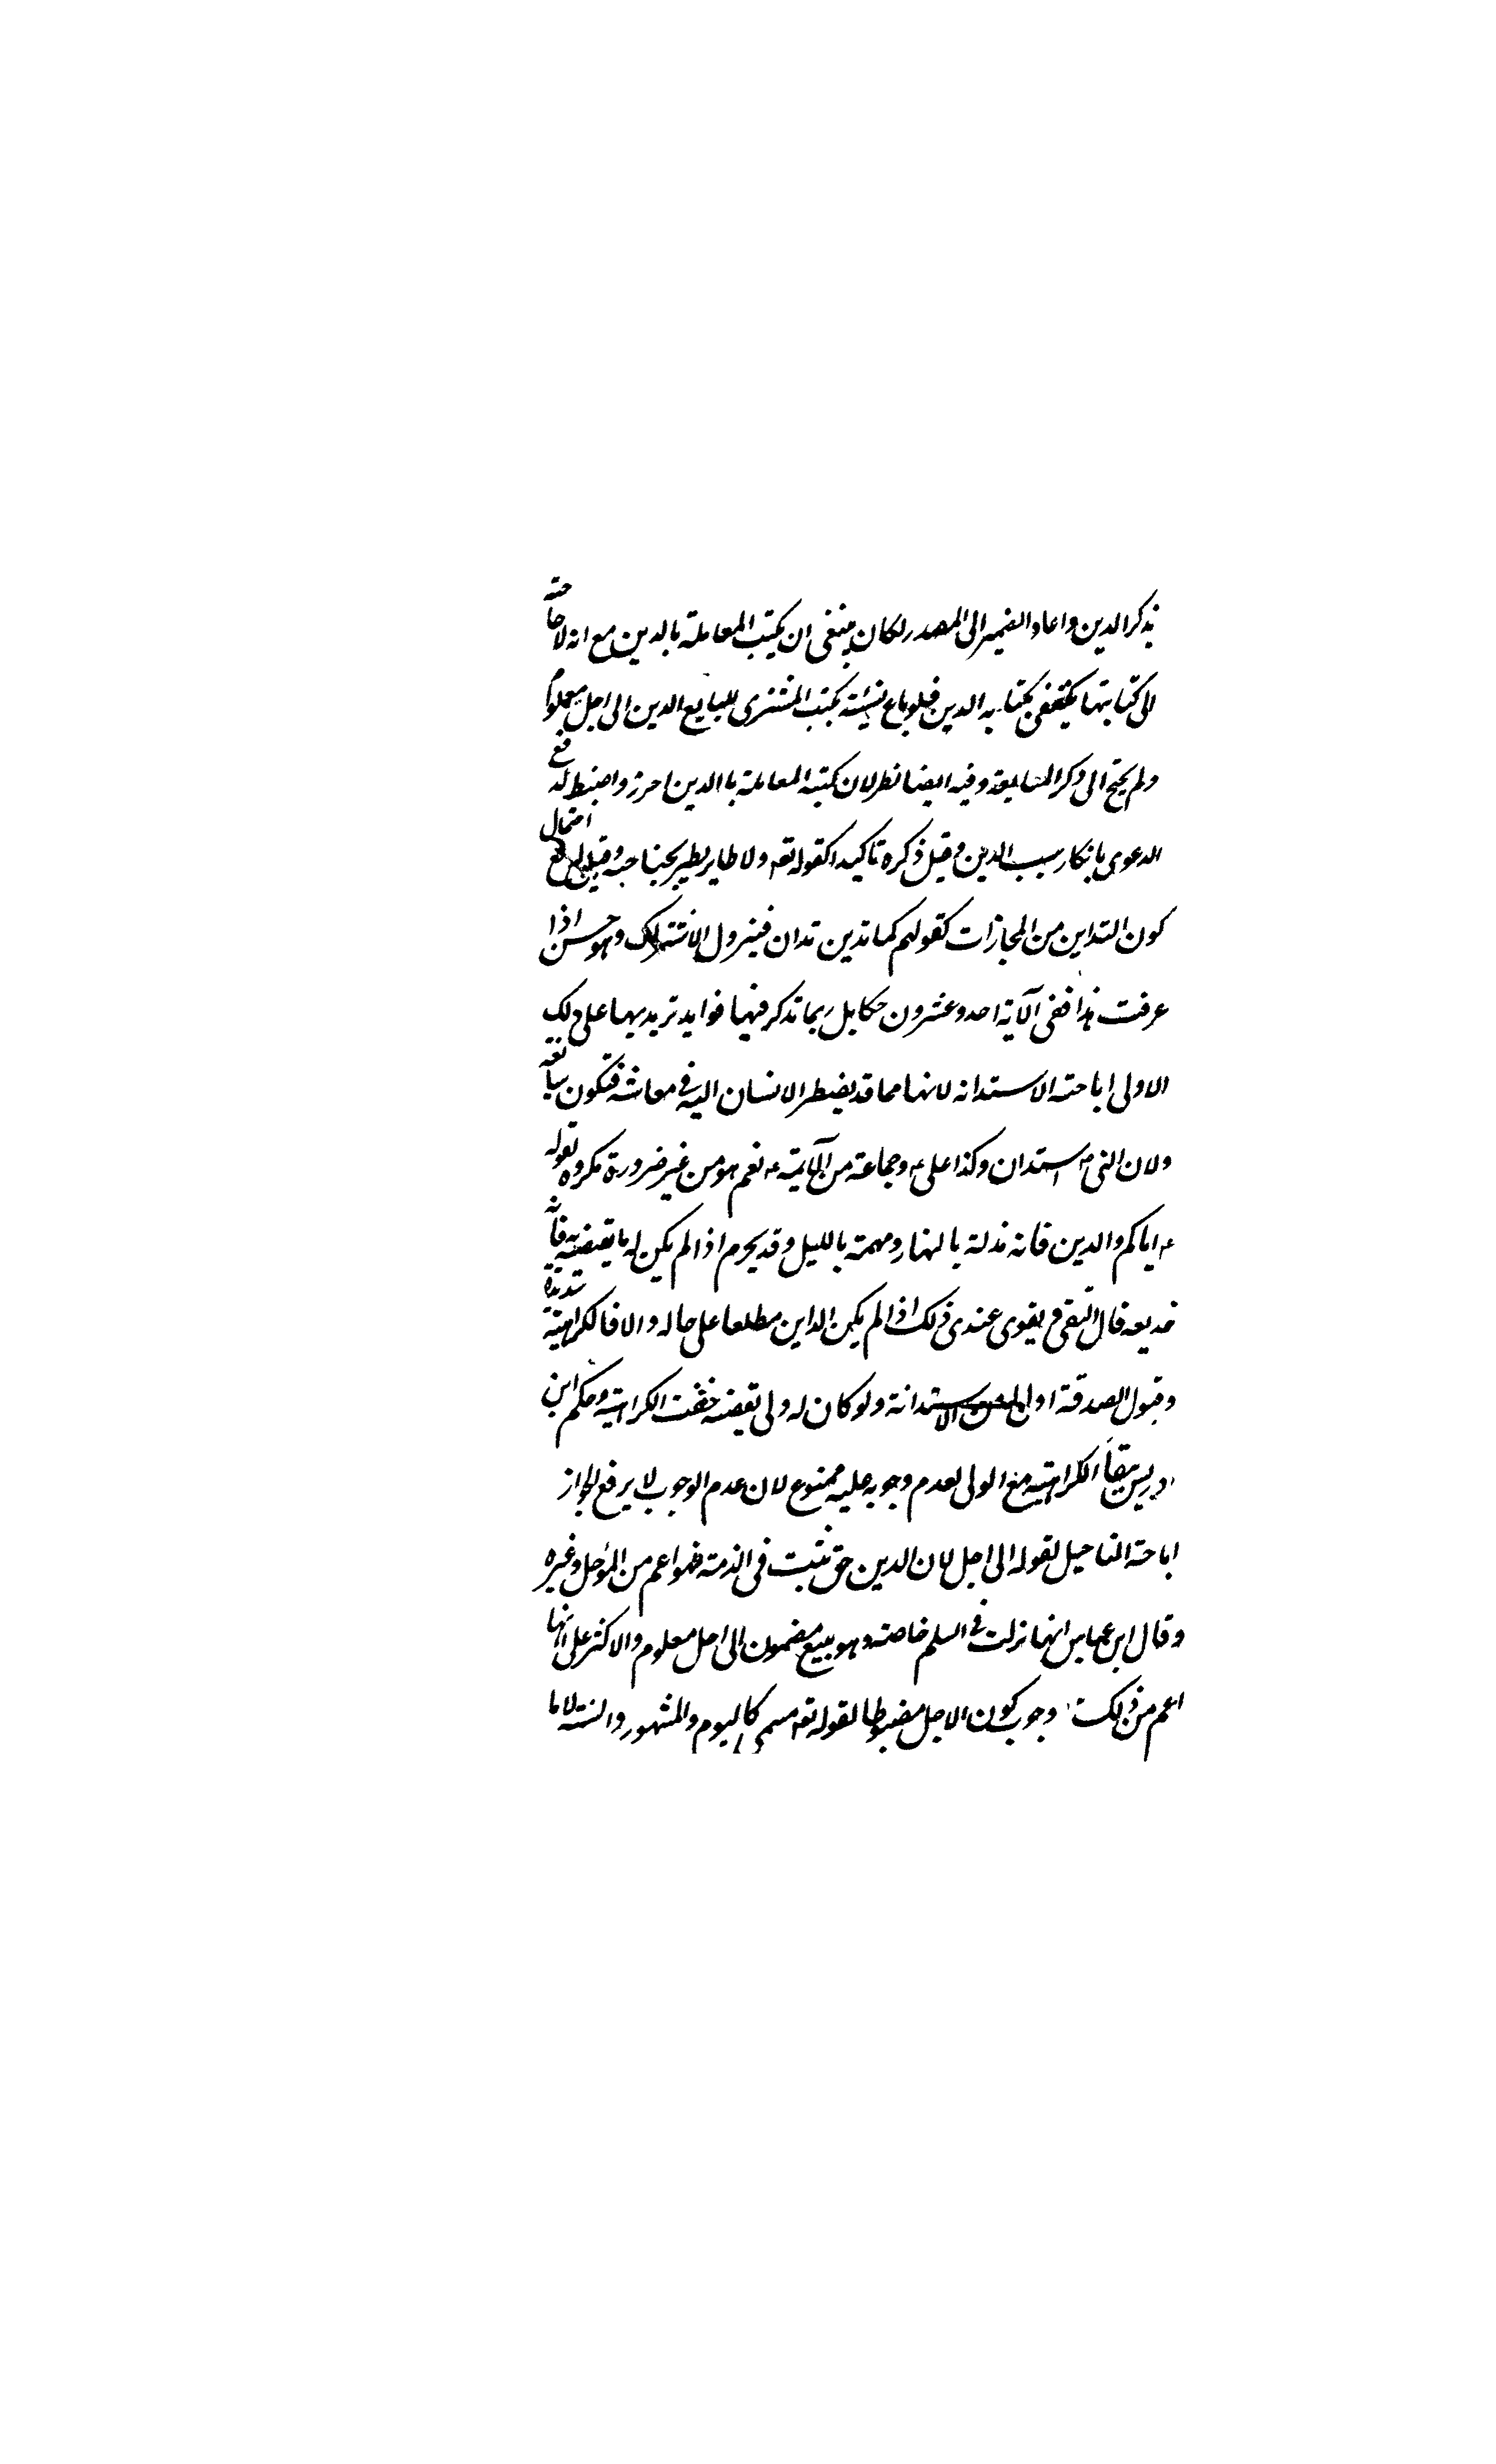 يذكر الدين واعاد الضمير الى المصدر لكان ينبغى ان يكتب المعاملة بالدين مع انه لا حاجة
الى كتابتها يكتفى بكتابه الدين فلو باع نسئية يكتب المشترى للبايع الدين الى اجل معلوم
ولم يحتج الى ذكر المبايعة وفيه ايضا نظر لان كتبه المعاملة باالدين احرز واضبط لدفع
الدعوى بانكار سبب الدين وقيل ذكره تاكيدا كقوله تعه ولا طاير يطير بجناحيه وقيل لدفع احتمال
كون التداين من المجازات كقولهم كما تدين تدان فيزول الاشتراك وهو حسن اذا
عرفت هذا ففى الآية احد وعشرون حكما بل ربما تذكر فيها فوايد تزيد بها على ذلك
الاولى اباحته الاستدانه لانها مما قد يضطر الانسان اليه فى معاشه فتكون سايغة
ولان النبى ص استدان وكذا على ع وجماعة من الآيمة ع نعم هو من غير ضرورة مكروه لقوله
ع اياكم والدين فانه مذلة بالنهار ومهمة بالليل وقد يحرم اذا لم يكن له ما يقضيه به فانه
خديعه قال التقى ويقوى عندى ذلك اذا لم يكن الداين مطلعا على حاله والا فالكراهية شديدة
وقبول الصدقة اولى من الاستدانة ولو كان له ولى يقضه خفت الكراهية وحكم ابن
ادريس ببقاء الكراهية مع الولى لعدم وجوبه عليه ممنوع لان عدم الوجوب لا يرفع الجواز
اباحة التاجيل لقوله الى اجل لان الدين حق يثبت فى الذمة فهو اعم من المؤجل وغيره
وقال ابن عباس انها نزلت فى السلم خاصه وهو بيع مضمون الى اجل معلوم والاكثر على انها
اعم من ذلك وجوب كون الاجل مضبوطا لقوله تعه مسمى كاليوم والشهور والسنة لا ما